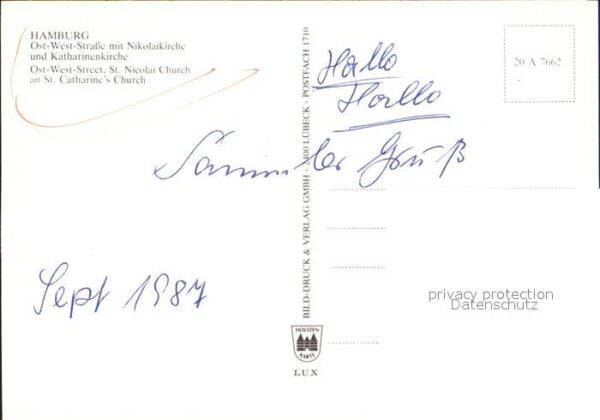 HAMBURG
Ost-West-Straße mit Nikolaikirche
und Katharinenkirche
Ost-West-Street, St. Nicolai Church
an St. Catharine's Church
BILD-DRUCK & VERLAG GMBH · 2400 LÜBECK · POSTFACH 1710
20 A 7662
Hallo
Hallo
Sammler Gruß
Sept 1987
privacy protection
Datenschutz
HOLSTEN
KARTE
LUX